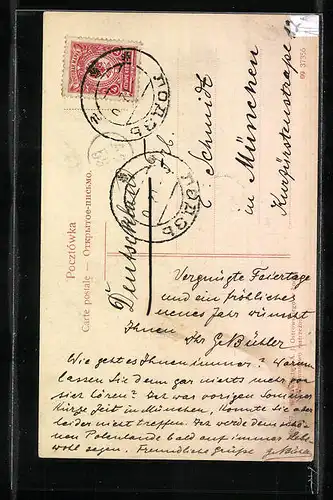 Pocztówka
Carte postale — Открытое-письмо.
09 37356
ЛОДЗЬ
ЛОДЗЬ
Deutschland
Schmidt
in München
Kurfürstenstraße 12
Vergnügte Feiertage
und ein fröhliches
neues Jahr wünscht
Ihnen
Ihr G. Bühler
Wie geht es Ihnen immer? Warum
lassen Sie denn gar nichts mehr von
sich hören? Ich war vorigen Sommer
kurze Zeit in München, konnte Sie aber
leider nicht treffen. Ich werde dem schö-
nen Polenlande bald auf immer Lebe-
wohl sagen. Freundliche Grüße